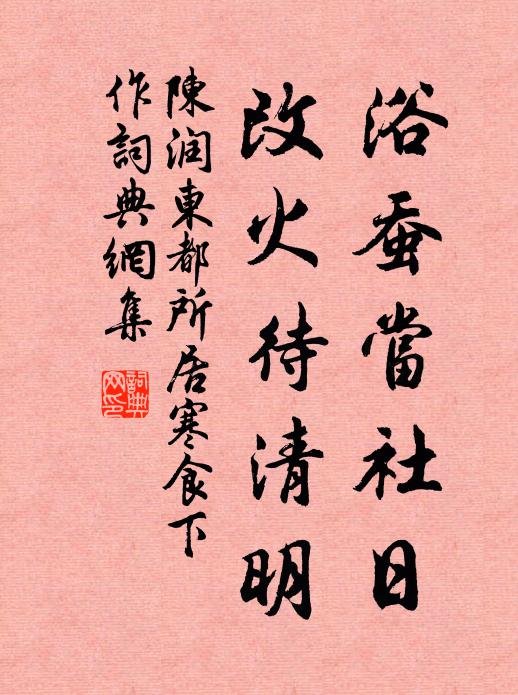 浴蚕當社日
改火待清明
陳润東都所居寒食下
作詞典網集
詞典
网印